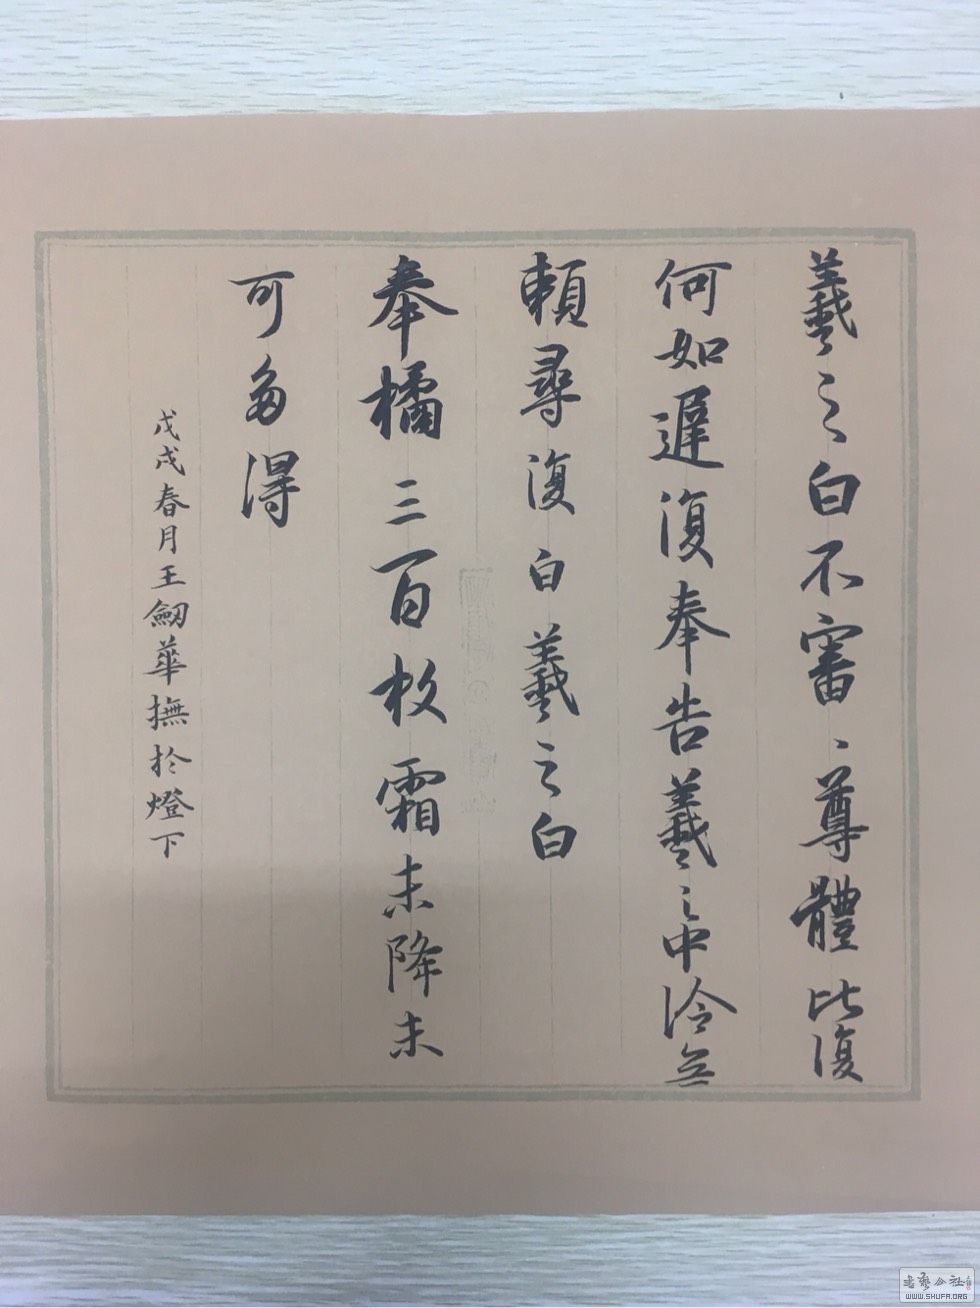 羲之白不審、尊體比復
何如遲復奉告羲之中冷無
賴尋復白羲之白
奉橘三百枚霜未降未
可多得
戊戌春月王劒華撫於燈下
WWW.SHUFA.ORG